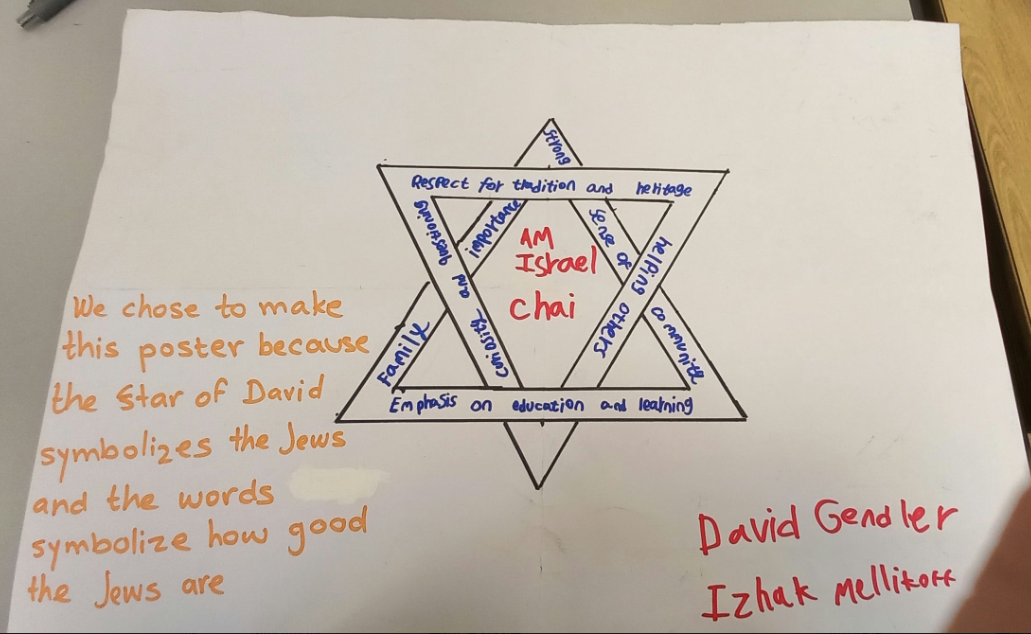 strong
Respect for tradition and heritage
importance
sense of
curiosity and questioning
helping others
AM
Israel
chai
Family
communitee
Emphasis on education and learning
We chose to make
this poster because
the star of David
symbolizes the Jews
and the words
symbolize how good
the Jews are
David Gendler
Izhak mellikoff